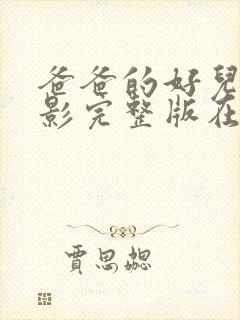 爸爸的好兒
影完整版在
賈思勰